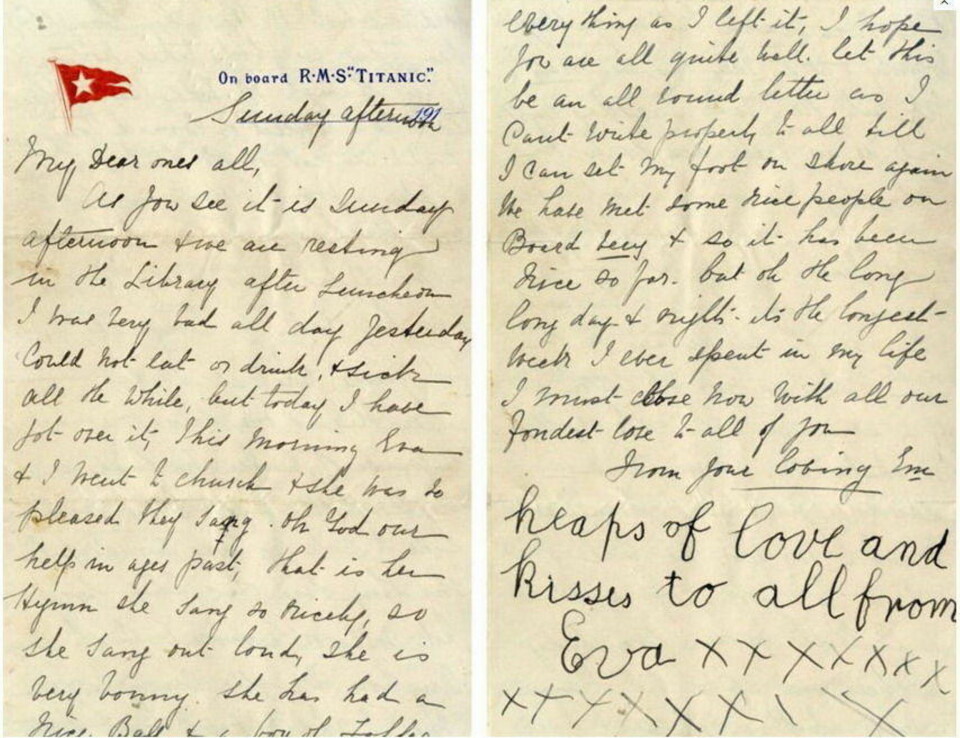 On board R·M·S "TITANIC."
Sunday afternoon 191
My Dear ones all,
As you see it is Sunday
afternoon & we are resting
in the Library after Luncheon
I was very bad all day yesterday
Could not eat or drink, & sick
all the while, but today I have
got over it, This morning Eva
& I went to church & she was so
pleased they sang. Oh God our
help in ages past, that is her
Hymn she sang so nicely, so
she sang out loud, she is
very bonny. she has had a
nice Ball & a box of Toffee
everything as I left it, I hope
you are all quite well. let this
be an all round letter as I
Cant write properly to all till
I can set my foot on shore again
We have met some nice people on
Board & so it has been
nice so far. but oh the long
long day & nights its the longest
Week I ever spent in my life
I must close now with all our
fondest love to all of you
From your loving Em
heaps of love and
kisses to all from
Eva x x x x x x x
x x x x x x x \ \ x